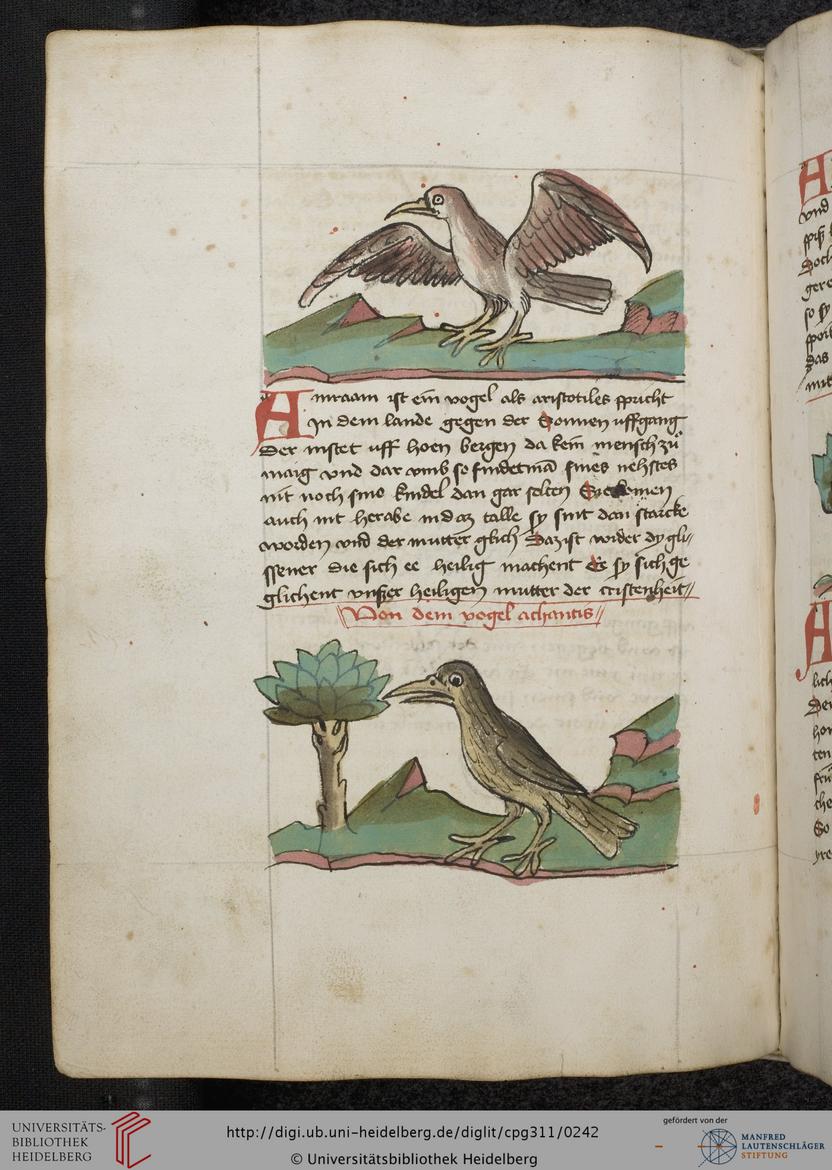 Amraam ist ein vogel als aristotiles spricht
In dem lande gegen der Sonnen uffgang
Der nistet uff hoen bergen da kein mensch zů
maig vnd dar vmb so findet mā sines nehstes
nit noch sine kindel dan gar selten
auch nit herabe in daz talle sy sint dan starcke
worden vnd der mutter glich Daz ist wider dy gli//
ssener die sich ee heilig machent Ee sy sich ge
glichent vnßer heiligen mutter der cristenheit//
Von dem vogel achantis//
A
vnd
Doch
gere
so sy
das
mit
A
lich
hor
ten
che
So
UNIVERSITÄTS-
BIBLIOTHEK
HEIDELBERG
http://digi.ub.uni-heidelberg.de/diglit/cpg311/0242
© Universitätsbibliothek Heidelberg
gefördert von der
MANFRED
LAUTENSCHLÄGER
STIFTUNG